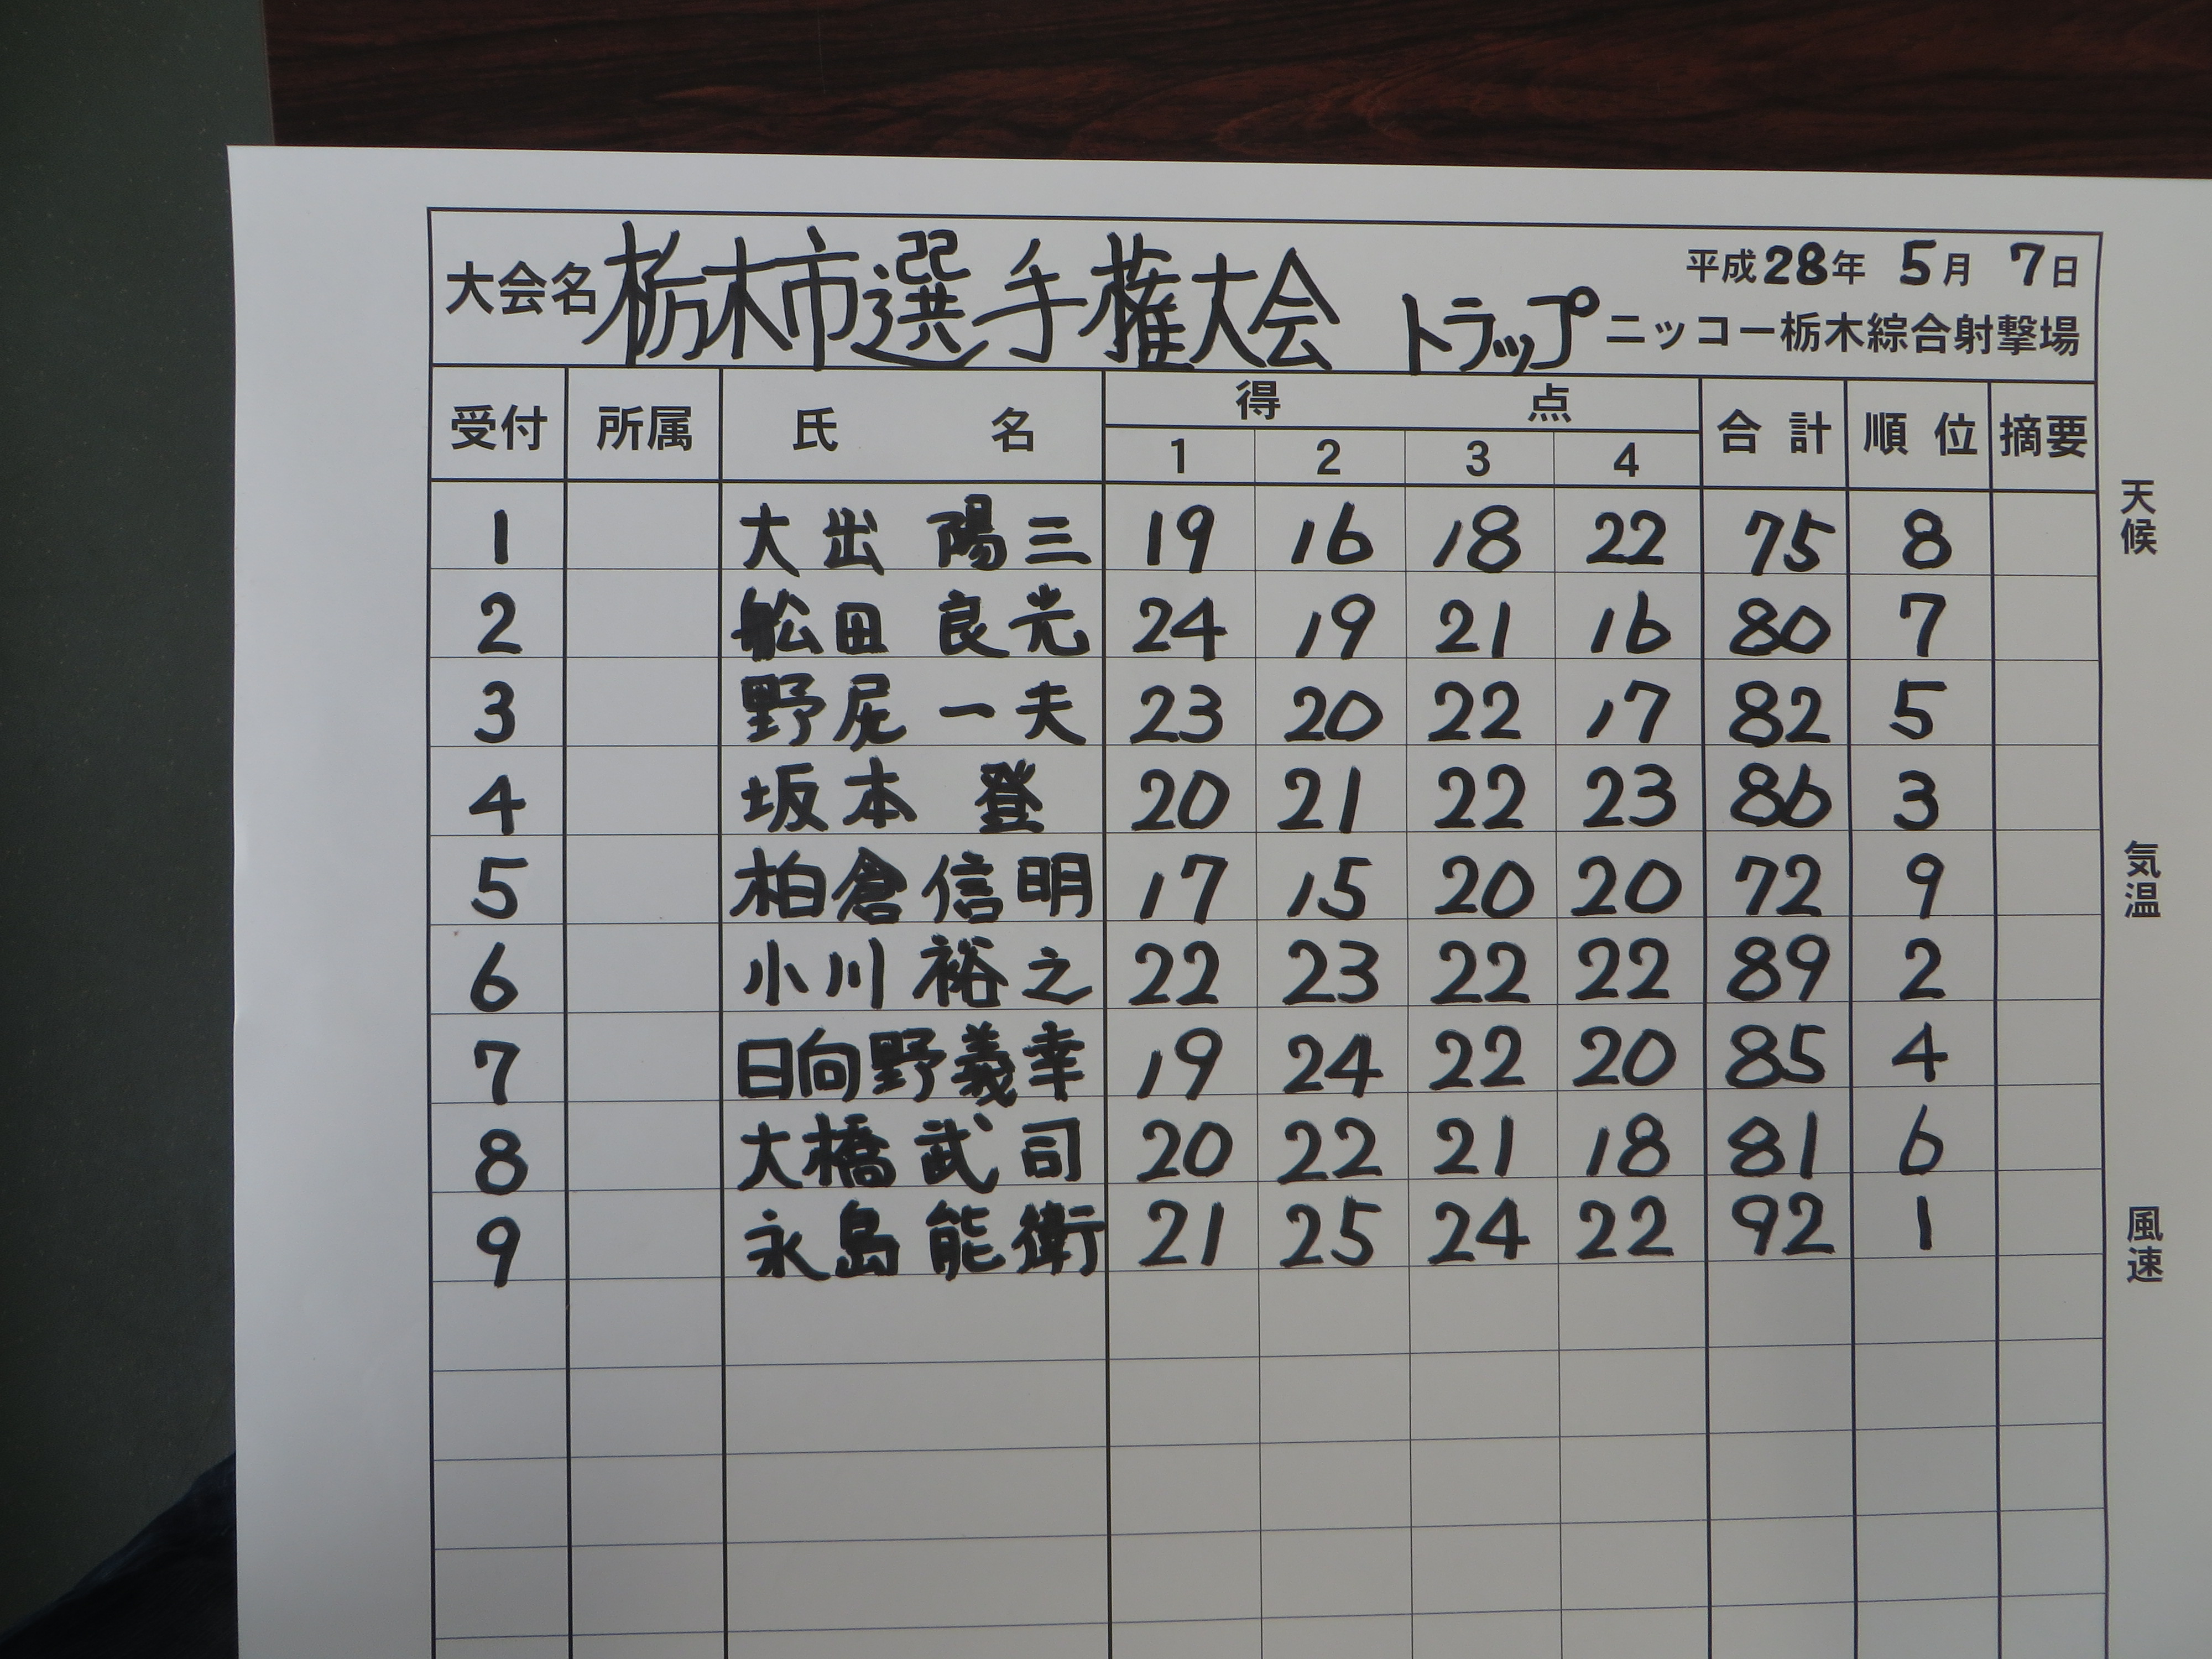 大会名 栃木市選手権大会 トラップ 平成28年 5月 7日
ニッコー栃木綜合射撃場
受付 所属 氏 名 得 点 合 計 順 位 摘要
1 2 3 4
1 大出 陽三 19 16 18 22 75 8
2 舩田 良光 24 19 21 16 80 7
3 野尻 一夫 23 20 22 17 82 5
4 坂本 登 20 21 22 23 86 3
5 柏倉信明 17 15 20 20 72 9
6 小川 裕之 22 23 22 22 89 2
7 日向野義幸 19 24 22 20 85 4
8 大橋 武司 20 22 21 18 81 6
9 永島 能衛 21 25 24 22 92 1
天候
気温
風速